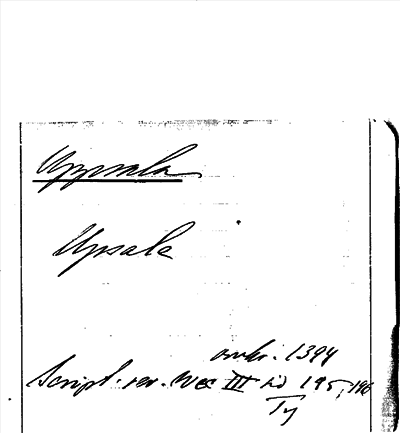 Uppsala
Upsala
omkr. 1394
Script. rer. svec III sid 195, 196
Ty